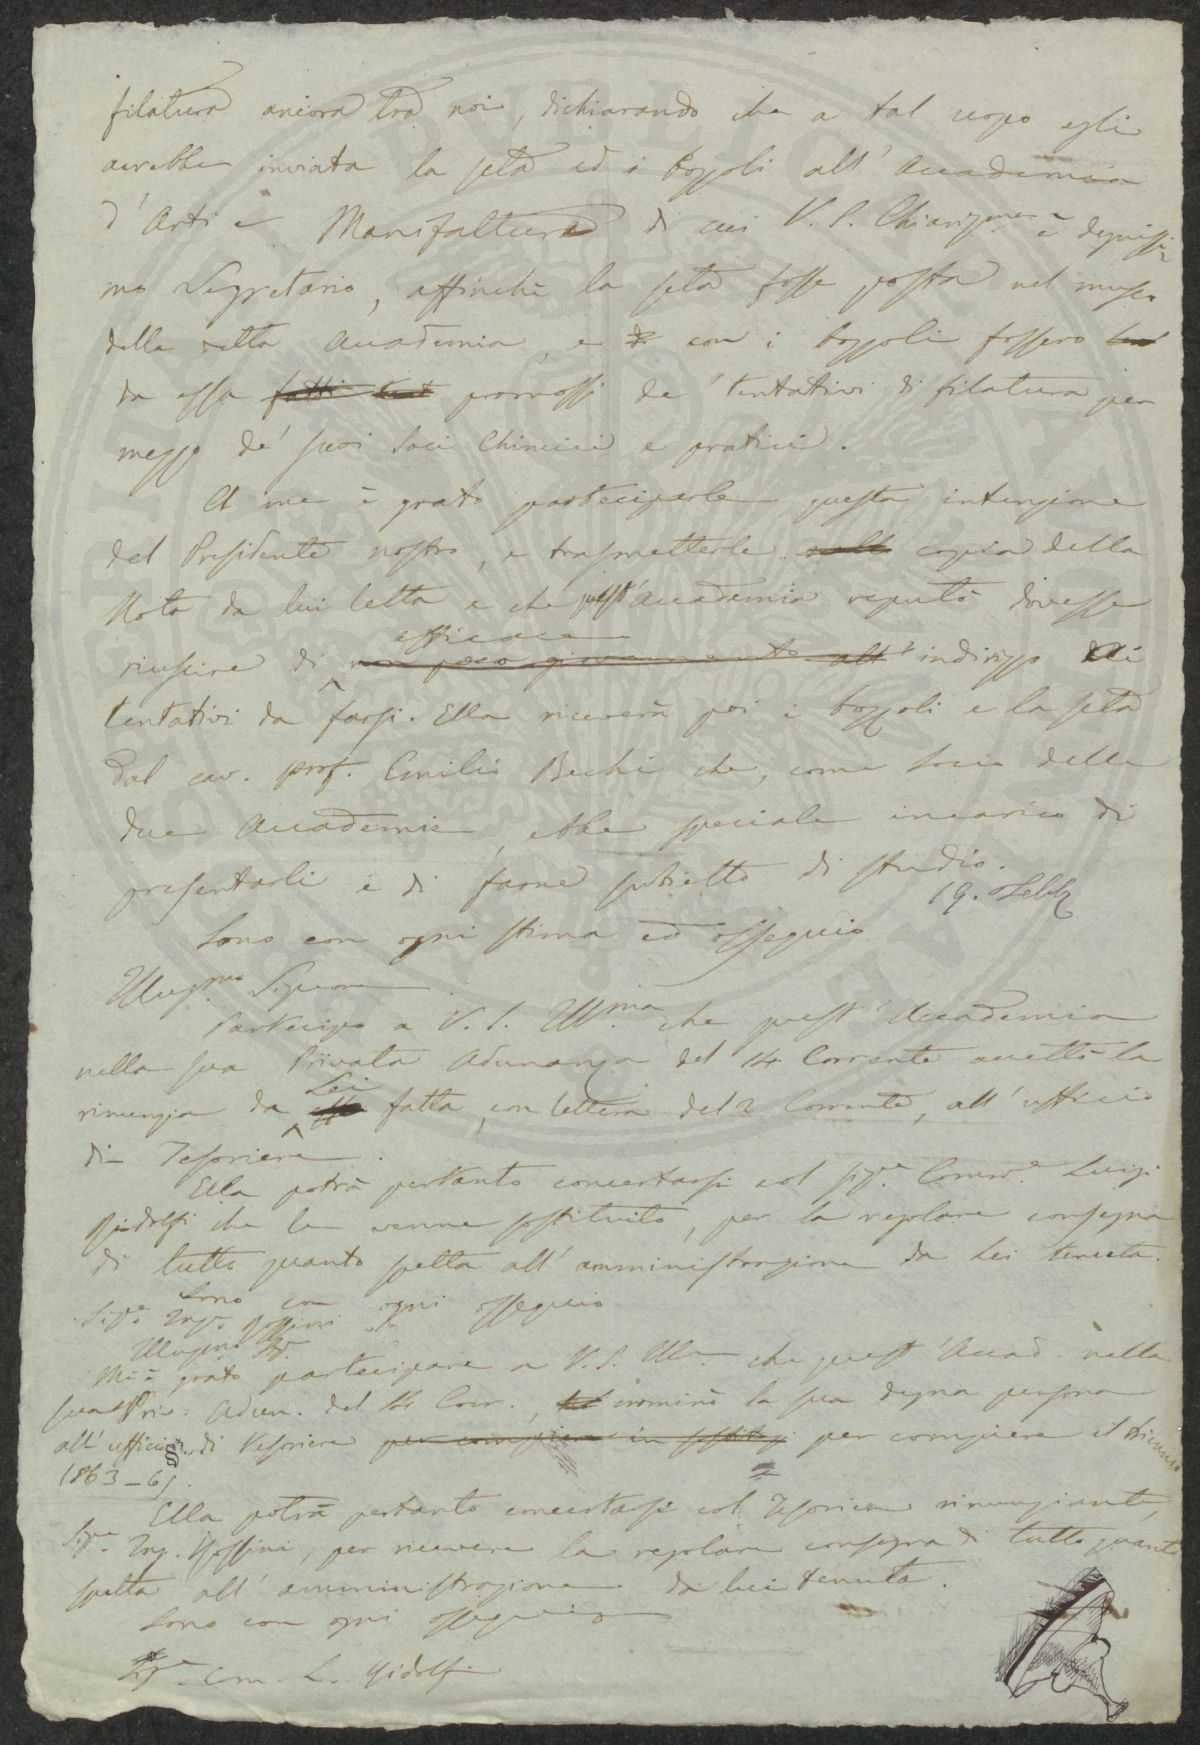 filatura ancora tra noi, dichiarando che a tal uopo egli
avrebbe inviata la seta ed i bozzoli all' Accademia
d' Arti e Manifatture di cui V. S. Chiarissma è degnissi
mo Segretario, affinchè la seta fosse posta nel museo
della detta Accademia, e con i bozzoli fossero
da essa fatti promossi de' tentativi di filatura per
mezzo de' suoi Soci Chimici e pratici.
A me è grato parteciparle questa intenzione
del Presidente nostro, e trasmetterle copia della
Nota da lui letta e che quest' Accademia reputò dovesse
efficace
riuscire di non poco giovamento all' indirizzo dei
tentativi da farsi. Ella riceverà poi i bozzoli e la seta
dal cav. prof. Emilio Bechi che, come Socio delle
due Accademie, ebbe speciale incarico di
presentarli e di farne subietto di studio.
19. Febb
Sono con ogni stima ed ossequio
Illusmo Signore
Partecipo a V. S. Ill.ma che quest' Accademia
nella sua Privata Adunanza del 14 Corrente accettò la
Lei
rinunzia da fatta, con lettera del 2 Corrente, all' ufficio
di Tesoriere.
Ella potrà pertanto concertarsi col sigre Comre Luigi
Ridolfi che le venne sostituito, per la regolare consegna
di tutto quanto spetta all' amministrazione da Lei tenuta.
Sono con ogni ossequio
Sigre Ingre
Illusmo Sigre
M'è grato partecipare a V. S. Illma che quest' Accad. nella
sua Priv. Adun. del 14 Corr., nominò la sua degna persona
all' ufficio di Tesoriere per compiere in per compiere il triennio
1863-65.
Ella potrà pertanto concertarsi col Tesoriere rinunziante,
Sigre Ing. , per ricevere la regolare consegna di tutto quanto
spetta all' amministrazione da lui tenuta.
Sono con ogni ossequio
Sigre Com. L. Ridolfi